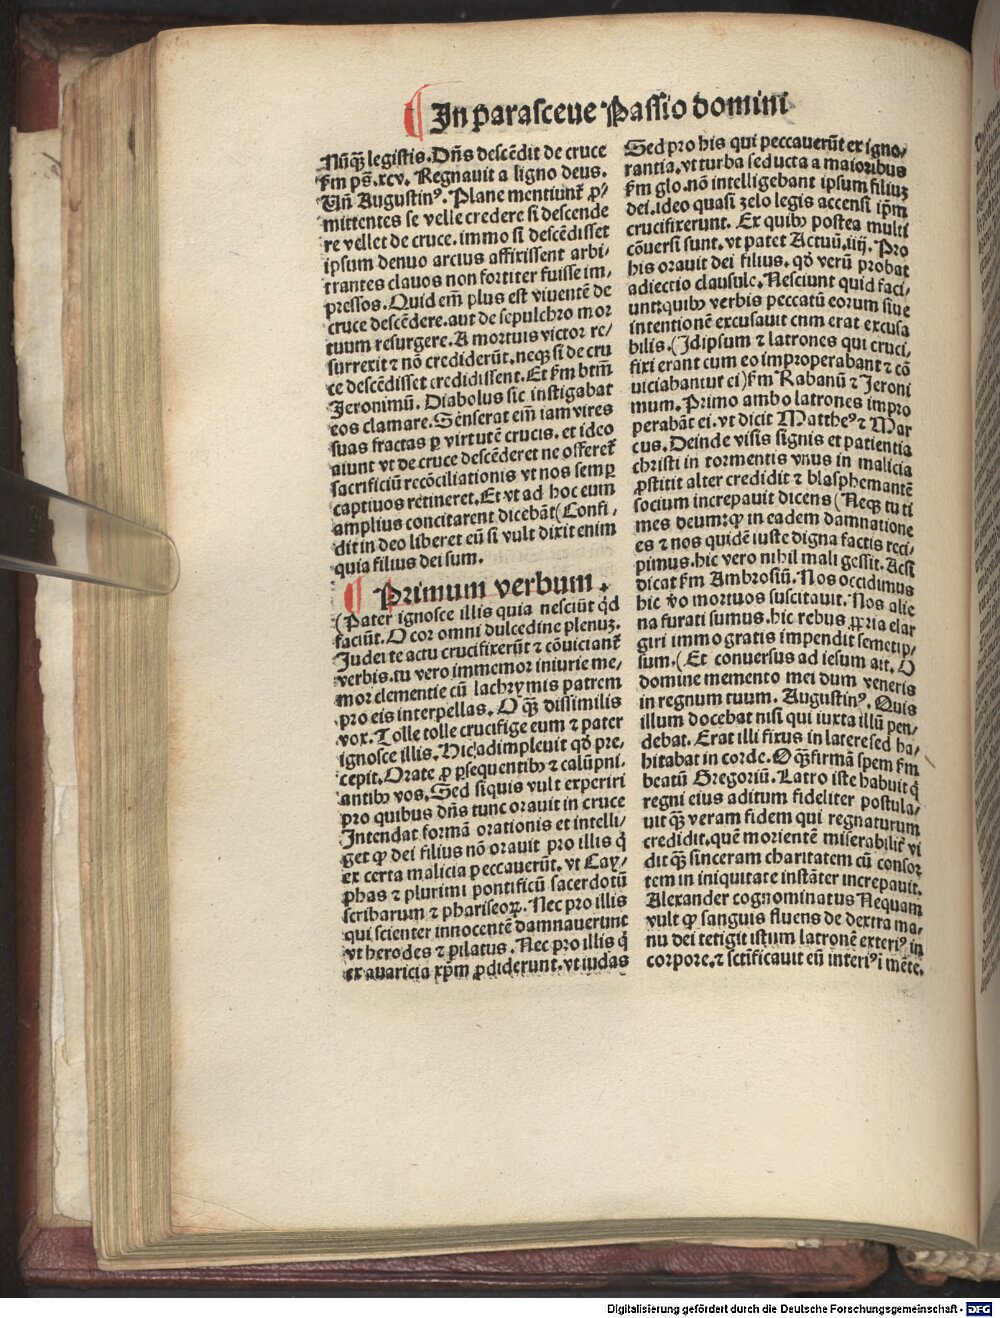 ¶ In parasceue Passio domini
Nūqꝫ legistis. Dn̄s descēdit de cruce
ẜm pš.xcv. Regnauit a ligno deus.
Un̄ Augustinꝰ. Plane mentiunt᷑ ꝓ/
mittentes se velle credere si descende
re vellet de cruce. immo si descēdisset
ipsum denuo arcius affixissent arbi/
trantes clauos non fortiter fuisse im/
pressos. Quid em̄ plus est viuentē de
cruce descēdere. aut de sepulchro mor
tuum resurgere. A mortuis victor re/
surrexit ⁊ nō crediderūt. neqꝫ si de cru
ce descēdisset credidissent. Et ẜm btm̄
Jeronimū. Diabolus sic instigabat
eos clamare. Senserat em̄ iam vires
suas fractas ꝑ virtutē crucis. et ideo
aiunt vt de cruce descēderet ne offeret᷑
sacrificiū recōciliationis vt nos semꝑ
captiuos retineret. Et vt ad hoc eum
amplius concitarent dicebāt (Confi/
dit in deo liberet eū si vult dixit enim
quia filius dei sum.
¶ Primum verbum.
(Pater ignosce illis quia nesciūt qd̄
faciūt. O cor omni dulcedine plenuꝫ.
Judei te actu crucifixerūt ⁊ cōuiciant᷑
verbis. tu vero immemor iniurie me/
mor clementie cū lachrymis patrem
pro eis interpellas. O qꝫ̄ dissimilis
vox. Tolle tolle crucifige eum ⁊ pater
ignosce illis. Hic adimpleuit qd̄ pre/
cepit. Orate ꝓ ꝑsequentibꝫ ⁊ calūpni.
antibꝫ vos. Sed siquis vult experiri
pro quibus dn̄s tunc orauit in cruce
Intendat formā orationis et intelli/
get ꝙ dei filius nō orauit pro illis q̇
ex certa malicia peccauerūt. vt Cay/
phas ⁊ plurimi pontificū sacerdotū
scribarum ⁊ phariseoꝝ. Nec pro illis
qui scienter innocentē damnauerunt
vt herodes ⁊ pilatus. Nec pro illis q̇
ex auaricia xp̄m ꝓdiderunt. vt iudas
Sed pro his qui peccauerūt ex igno/
rantia. vt turba seducta a maioribus
ẜm glo. nō intelligebant ipsum filiuꝫ
dei. ideo quasi zelo legis accensi ip̄m
crucifixerunt. Ex quibꝫ postea multi
cōuersi sunt. vt patet Actuū.iiij. Pro
his orauit dei filius. qd̄ verū probat
adiectio clausule. Nesciunt quid faci/
unt: quibꝫ verbis peccatū eorum siue
intentionē excusauit cnm erat excusa
bilis. (Idipsum ⁊ latrones qui cruci.
fixi erant cum eo improperabant ⁊ cō
uiciabantur ei) ẜm Rabanū ⁊ Jeroni
mum. Primo ambo latrones impro
perabāt ei. vt dicit Mattheꝰ ⁊ Mar
cus. Deinde visis signis et patientia
christi in tormentis vnus in malicia
ꝑstitit alter credidit ⁊ blasphemantē
socium increpauit dicens (Neqꝫ tu ti
mes deum: ꝙ in eadem damnatione
es ⁊ nos quidē iuste digna factis reci/
pimus. hic vero nihil mali gessit. Acsi
dicat ẜm Ambrosiū. Nos occidimus
hic v̄o mortuos suscitauit. Nos alie
na furati sumus. hic rebus ꝓpria elar
giri immo gratis impendit semetip/
sum. (Et conuersus ad iesum ait. O
domine memento mei dum veneris
in regnum tuum. Augustinꝰ. Quis
illum docebat nisi qui iuxta illū pen/
debat. Erat illi fixus in latere sed ha/
bitabat in corde. O qꝫ̄ firmā spem ẜm
beatū Gregoriū. Latro iste habuit q̇
regni eius aditum fideliter postula/
uit qꝫ̄ veram fidem qui regnaturum
credidit. quē morientē miserabilit᷑ vi
dit qꝫ̄ sinceram charitatem cū consor
tem in iniquitate instāter increpauit.
Alexander cognominatus Nequam
vult ꝙ sanguis fluens de dextra ma/
nu dei tetigit istum latronē exteriꝰ in
corpore. ⁊ sctīficauit eū interiꝰ ī mēte.
Digitalisierung gefördert durch die Deutsche Forschungsgemeinschaft - DFG